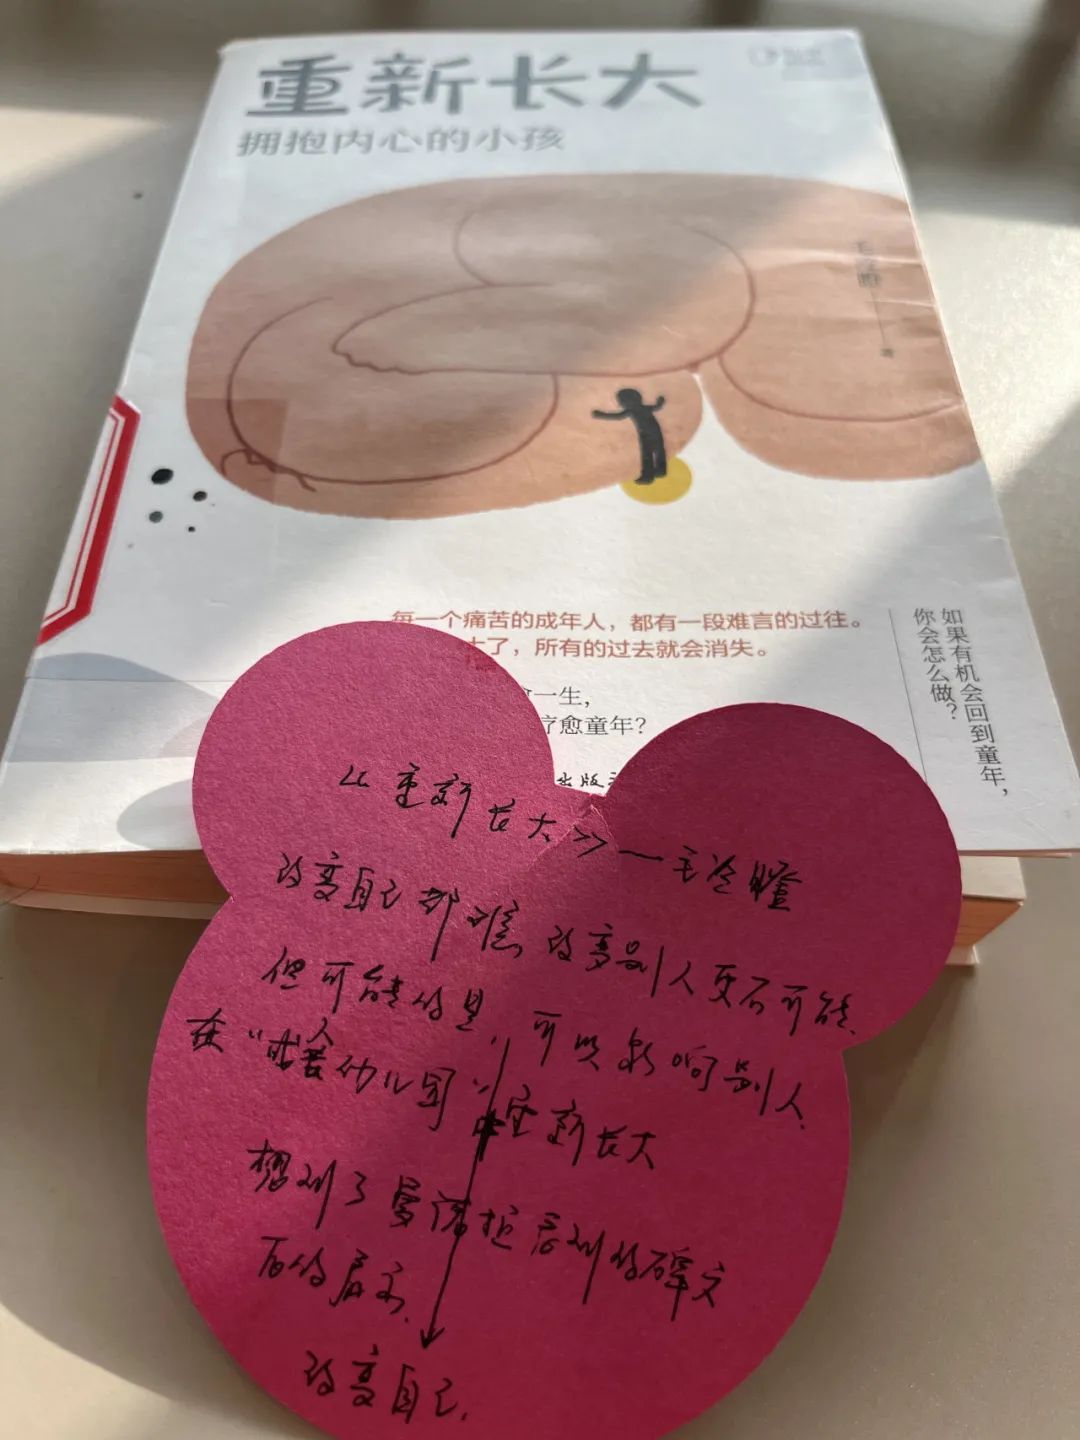 重新长大
拥抱内心的小孩
每一个痛苦的成年人，都有一段难言的过往。
大了，所有的过去就会消失。
一生，
疗愈童年？
出版
如果有机会回到童年，
你会怎么做？
《重新长大》—毛泠瞪
改变自己都难，改变别人更不可能
但可能的是，可以影响别人
在“成人幼儿园”重新长大
想到了曼诺拉看到的碑文
后的启示
改变自己.